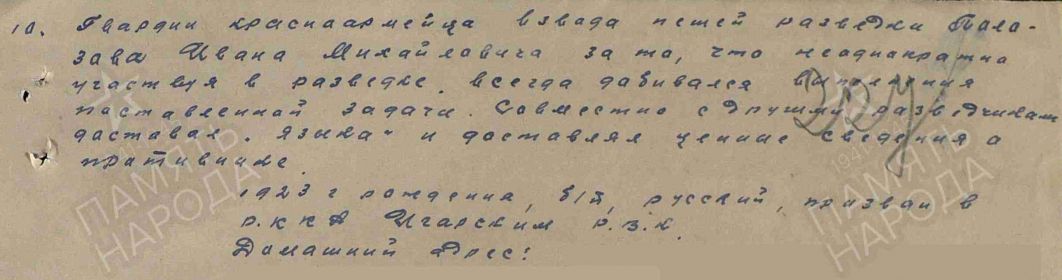 10. Гвардии красноармейца взвода пешей разведки Пала-
зова Ивана Михайловича за то, что неоднократно
участвуя в разведке всегда добивался выполнения
поставленной задачи. Совместно с другими разведчиками
доставал „языка" и доставлял ценные сведения о
противнике.
1923 г рождения, б/п, русский, призван в
РККА Игарским Р.В.К.
Домашний Адрес:
ПАМЯТЬ
НАРОДА
ПАМЯТЬ
НАРОДА